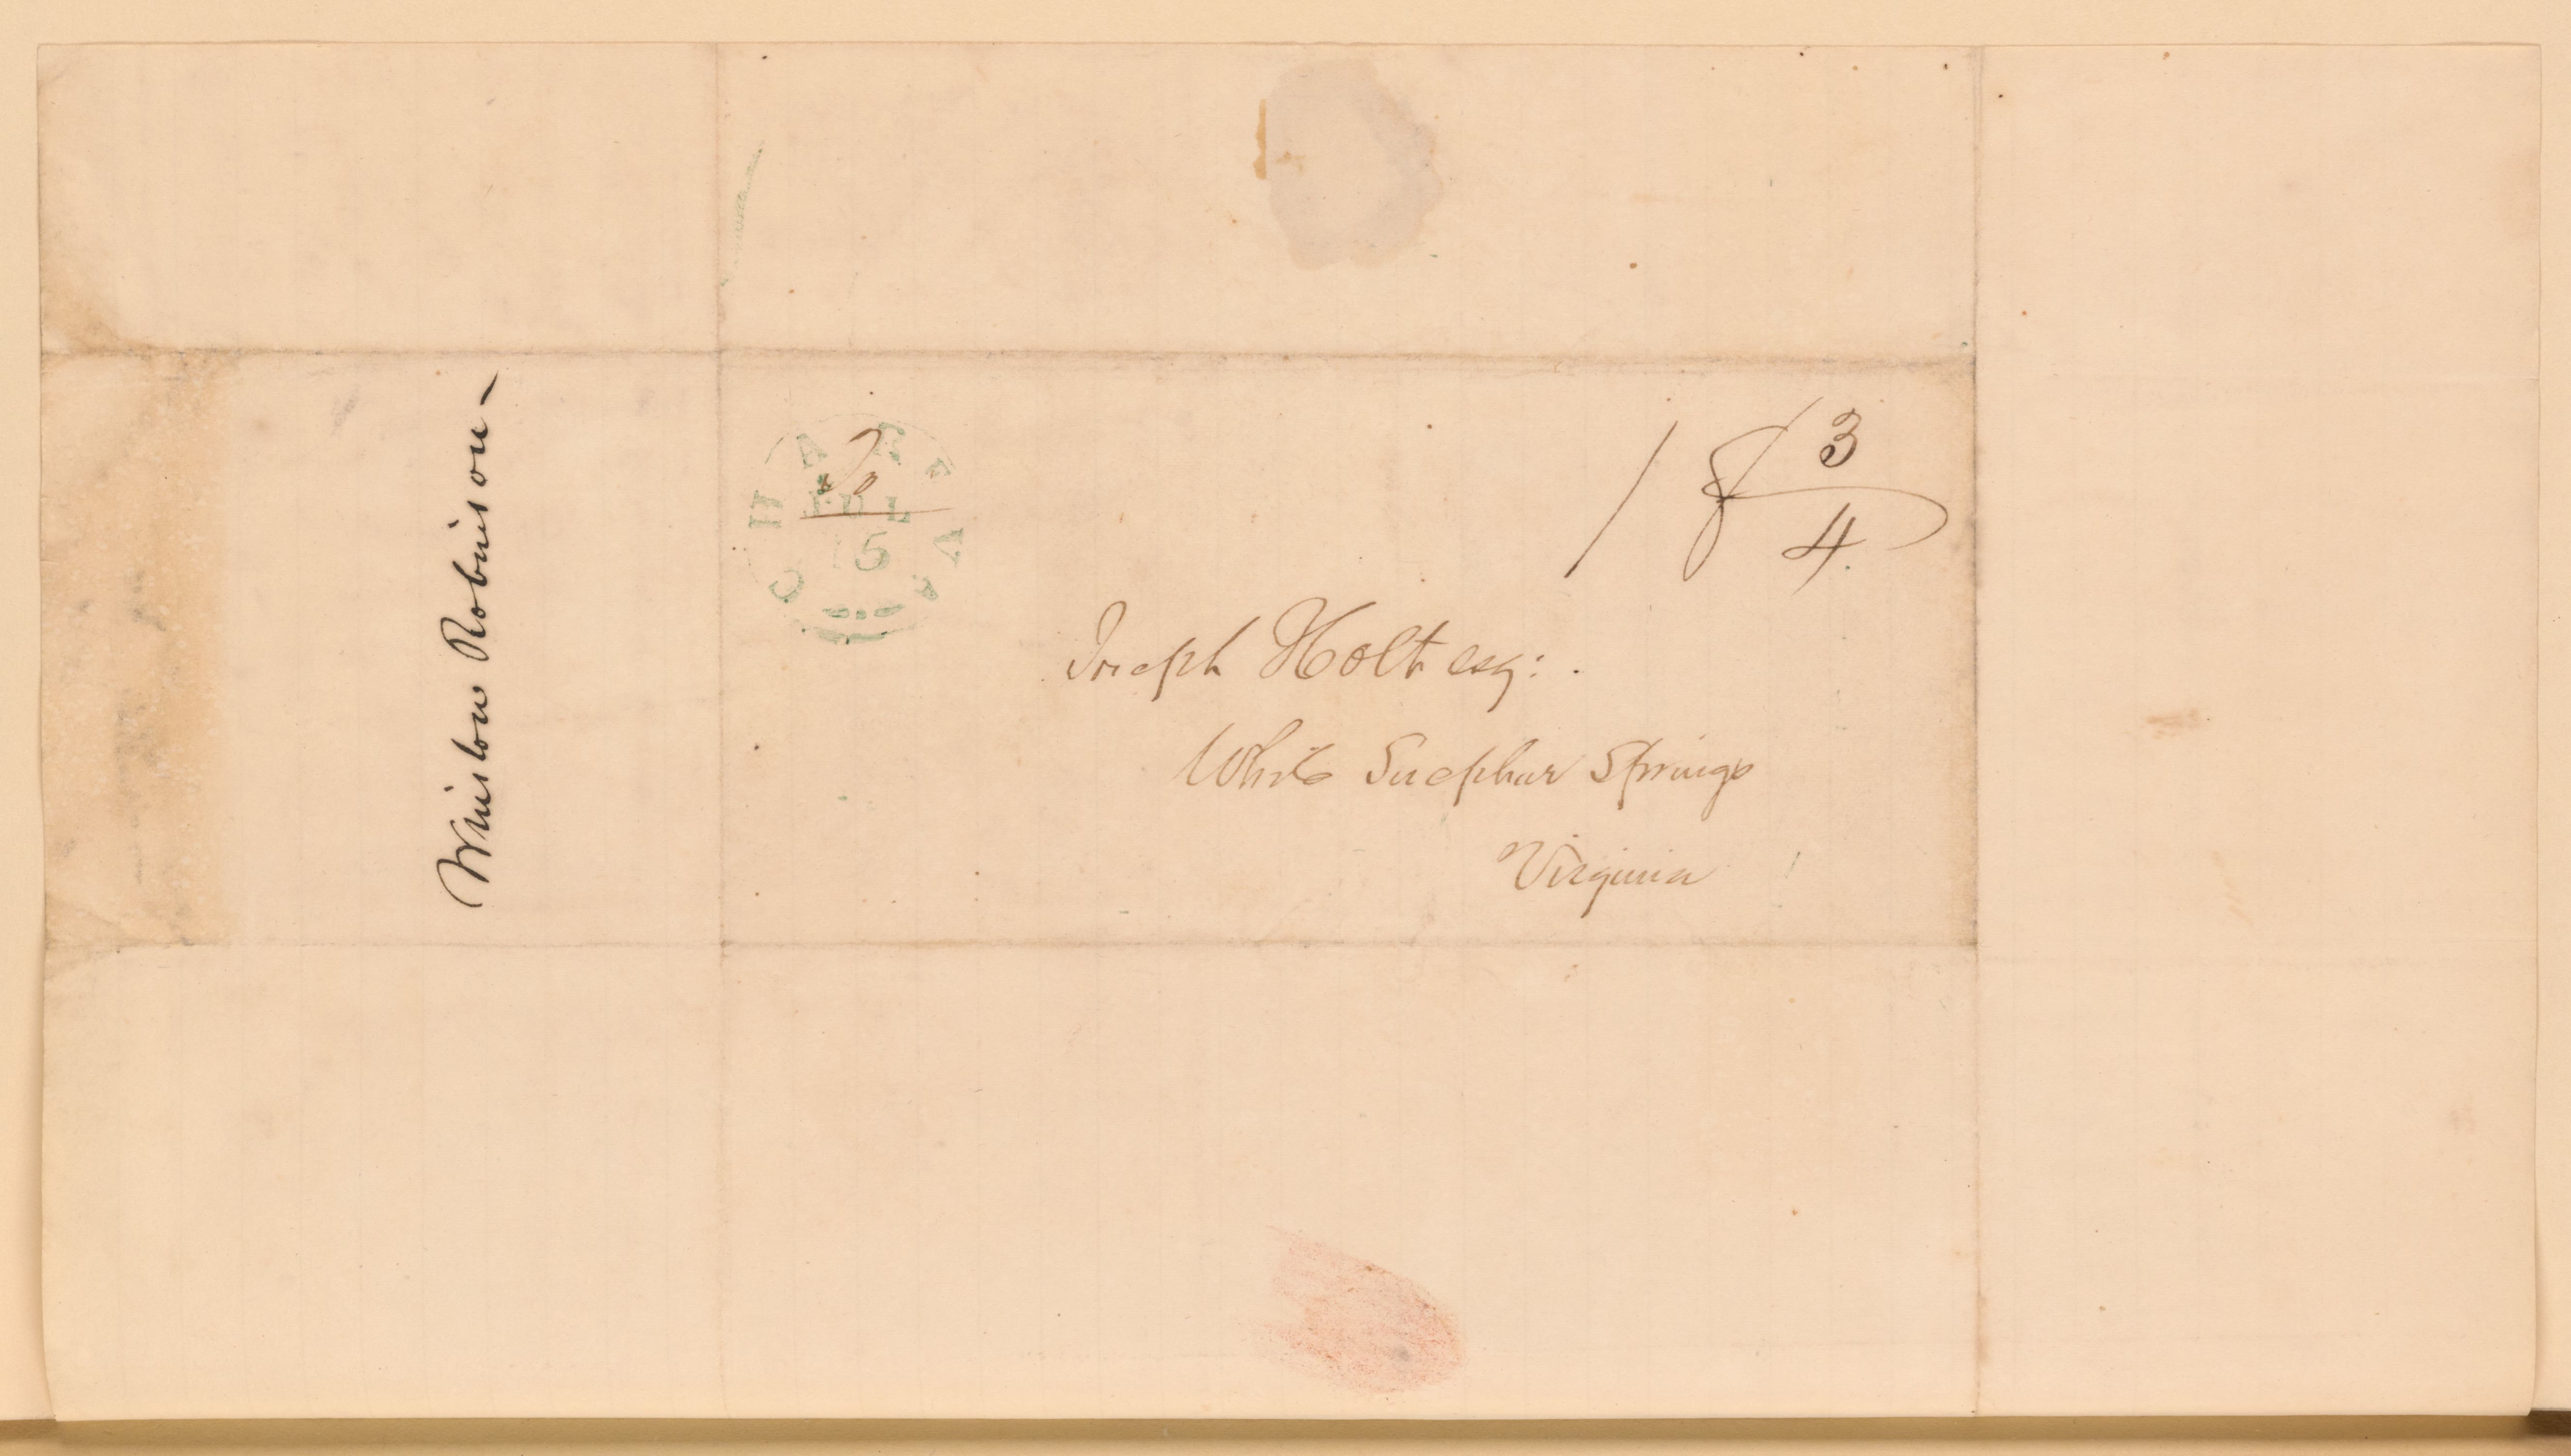 Winston Robinson -
To
JUL
15
18 3/4
Joseph Holt esq:.
White Sulphur Springs
Virginia